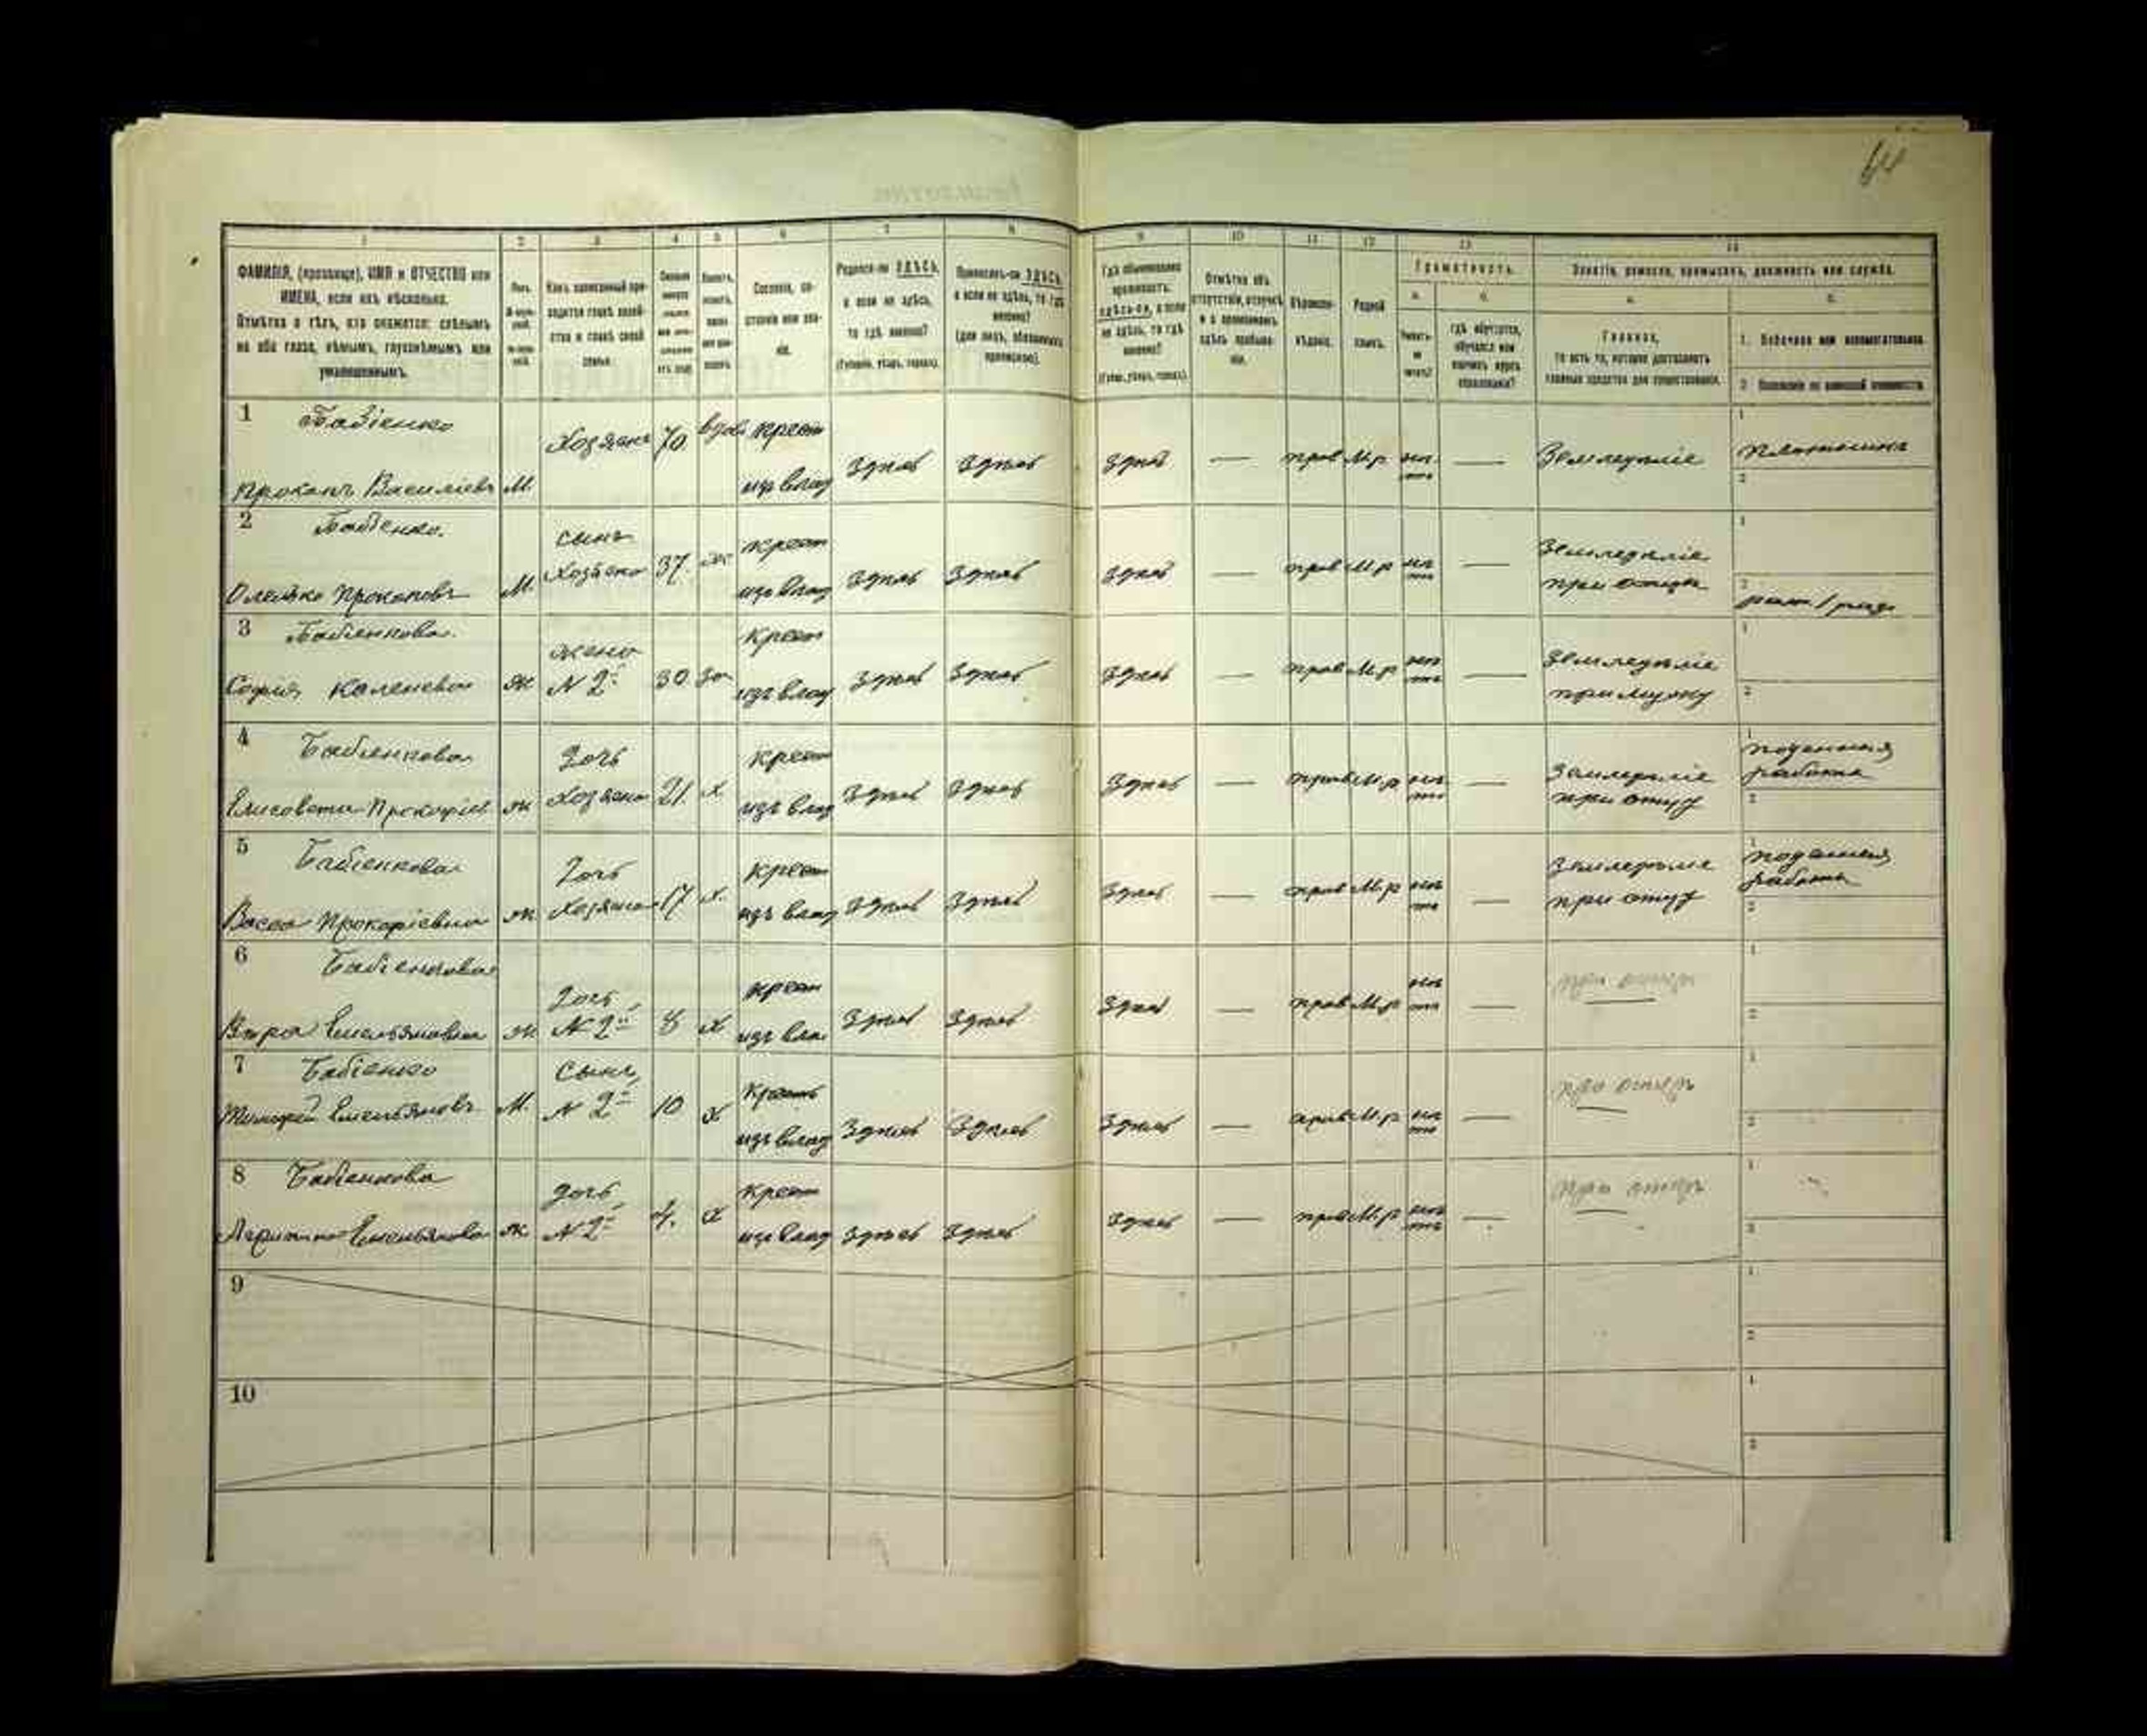 64
1 2 3 4 5 6 7 8 9 10 11 12 13 14
ФАМИЛІЯ, (прозвище), ИМЯ и ОТЧЕСТВО или
ИМЕНА, если ихъ нѣсколько.
Отмѣтка о тѣхъ, кто окажется: слѣпымъ
на оба глаза, нѣмымъ, глухонѣмымъ или
умалишеннымъ.
Полъ.
Какъ записанный при-
ходится главѣ хозяй-
ства и главѣ своей
семьи.
Сословіе, со-
стояніе или зва-
ніе.
Родился-ли ЗДѢСЬ,
а если не здѣсь,
то гдѣ именно?
(Губернія, уѣздъ, городъ).
Приписанъ-ли ЗДѢСЬ,
а если не здѣсь, то гдѣ
именно?
(для лицъ, обязанныхъ
припискою).
Гдѣ обыкновенно
проживаетъ:
здѣсь-ли, а если
не здѣсь, то гдѣ
именно?
(Губер., уѣздъ, городъ).
Отмѣтка объ
отсутствіи, отлучкѣ
и о временномъ
здѣсь пребыва-
ніи.
Вѣроиспо-
вѣданіе.
Родной
языкъ.
Грамотность.
а. б.
Умѣетъ-
ли
читать?
гдѣ обучается,
обучался или
кончилъ курсъ
образованія?
Занятіе, ремесло, промыселъ, должность или служба.
а. б.
Главное,
то есть то, которое доставляетъ
главныя средства для существованія.
1. Побочное или вспомогательное.
2. Положеніе по воинской повинности.
1 Бабіенко
Прокопъ Васильевъ М. Хозяинъ 70. вдов крест
изъ влад здѣсь здѣсь здѣсь — прав М.р нѣ
тъ — Земледѣліе 1
2
2 Бабіенко.
Прокоповъ М. сынъ
Хозяина 37. ж крест
изъ влад здѣсь здѣсь здѣсь — прав М.р нѣ
тъ — Земледѣліе
при отцѣ 1
2
3 Бабіенкова.
София М жена
N 2й 30 за крест
изъ влад здѣсь здѣсь здѣсь — прав М.р нѣ
тъ — Земледѣліе
при мужу 1
2
4 Бабіенкова
Елисовета Прокофіев ж дочь
Хозяина 21. х крест
изъ влад здѣсь здѣсь здѣсь — прав М.р нѣ
тъ — Земледѣліе
при отцу 1 поденная
работа
2
5 Бабіенкова
Васса Прокофіевна ж дочь
Хозяина 17 х. крест
изъ влад здѣсь здѣсь здѣсь — прав М.р нѣ
тъ — Земледѣліе
при отцу 1 поденная
работа
2
6 Бабіенкова
Вѣра Емельяновна ж дочь
N 2й 8 х крест
изъ влад здѣсь здѣсь здѣсь — прав М.р нѣ
тъ — при отцѣ 1
2
7 Бабіенко
Тимофей Емельяновъ М. сынъ
N 2й 10 х крестъ
изъ влад здѣсь здѣсь здѣсь — прав М.р нѣ
тъ — при отцѣ 1
2
8 Бабіенкова
Емельянова ж. дочь
N 2й 4. х крест
изъ влад здѣсь здѣсь здѣсь — прав М.р нѣ
тъ — при отцѣ 1
2
9 1
2
10 1
2